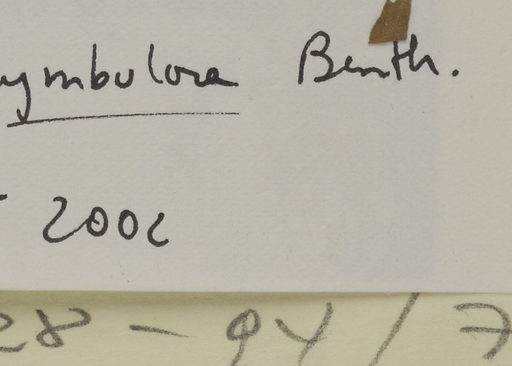 ymbulosa Benth.
2002
28 - 94 / 7